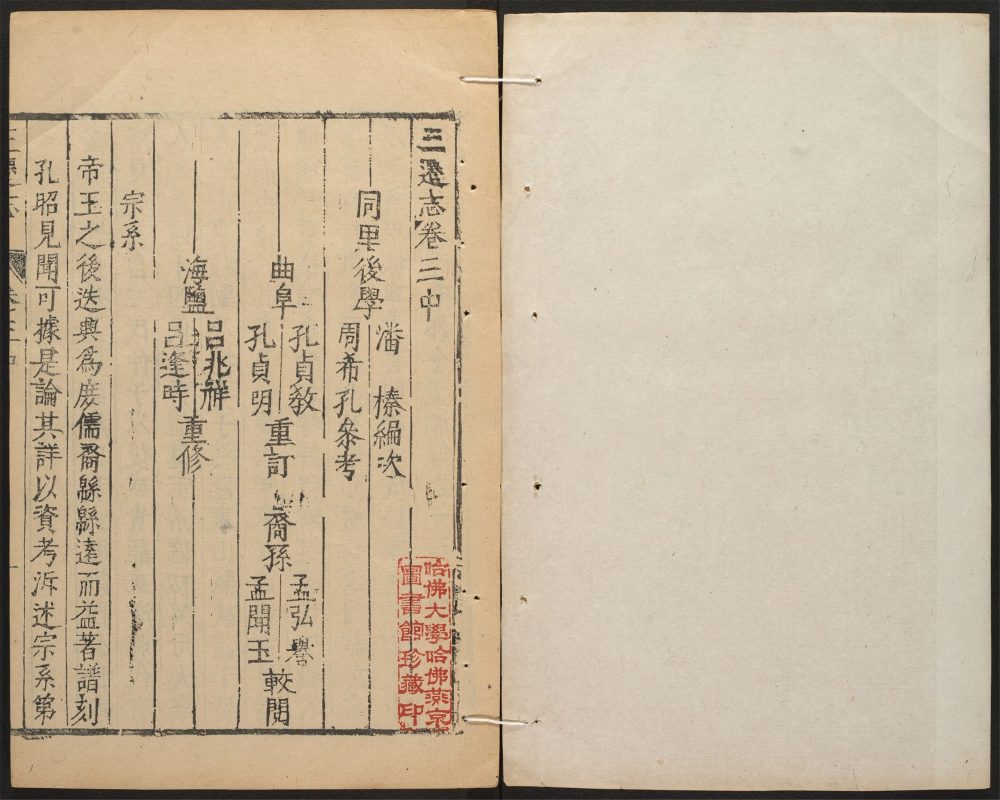 三遷志卷三中
同里後學
潘榛編次
周希孔叅考
曲阜
孔貞敎
孔貞明
重訂
裔孫
孟弘譽
孟聞玉
較閱
海鹽
呂兆祥
呂逢時
重修
宗系
帝王之後迭興爲庶儒裔緜緜遠而益著譜刻
孔昭見聞可據是論其詳以資考泝述宗系第
哈佛大學哈佛燕京
圖書館珍藏印